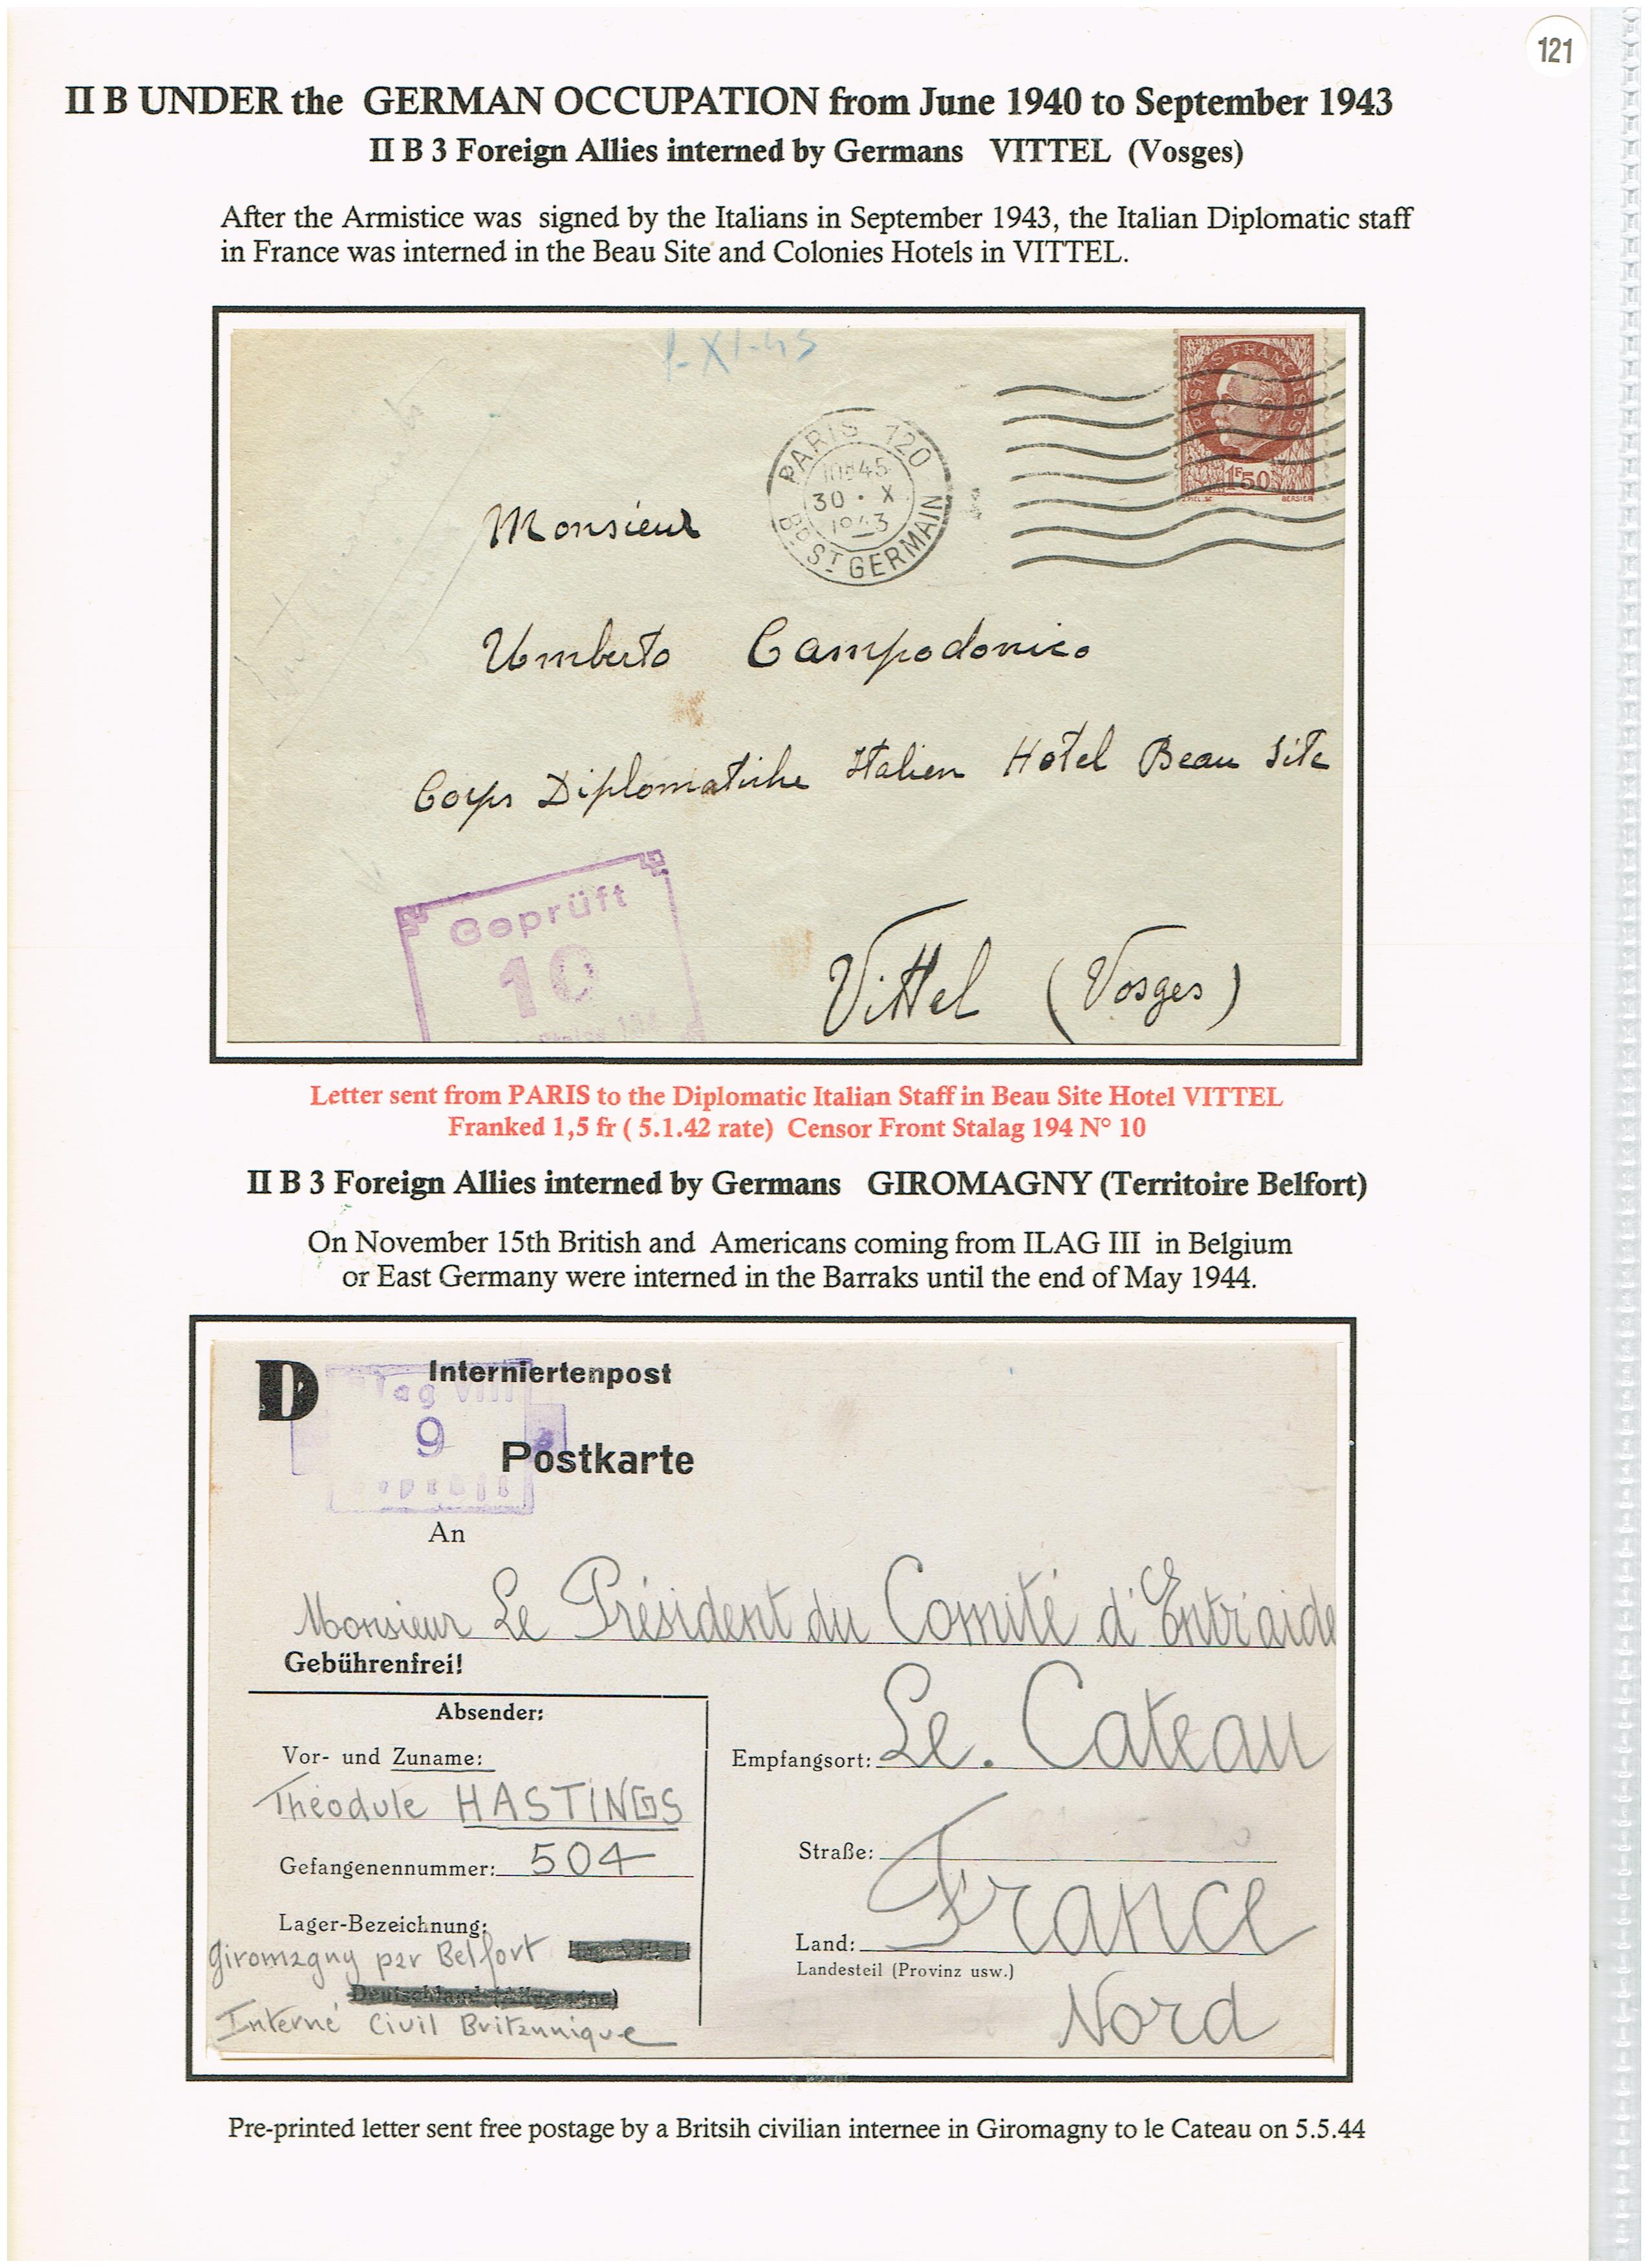 121
II B UNDER the GERMAN OCCUPATION from June 1940 to September 1943
II B 3 Foreign Allies interned by Germans VITTEL (Vosges)
After the Armistice was signed by the Italians in September 1943, the Italian Diplomatic staff
in France was interned in the Beau Site and Colonies Hotels in VITTEL.
POSTES FRANÇAISES
1F50
BERSIER
PARIS 120
30 · X
1943
BD ST GERMAIN
Monsieur
Umberto Campodonico
Corps Diplomatiche Italien Hotel Beau Site
Geprüft
10
Vittel (Vosges)
Letter sent from PARIS to the Diplomatic Italian Staff in Beau Site Hotel VITTEL
Franked 1,5 fr ( 5.1.42 rate) Censor Front Stalag 194 N° 10
II B 3 Foreign Allies interned by Germans GIROMAGNY (Territoire Belfort)
On November 15th British and Americans coming from ILAG III in Belgium
or East Germany were interned in the Barraks until the end of May 1944.
D Interniertenpost
9
Postkarte
An
Monsieur Le Président du Comité d'Entr'aide
Gebührenfrei!
Absender:
Vor- und Zuname:
Théodule HASTINGS
Gefangenennummer: 504
Lager-Bezeichnung:
Giromagny par Belfort
Interné Civil Britannique
Empfangsort: Le. Cateau
Straße:
Land: France
Landesteil (Provinz usw.)
Nord
Pre-printed letter sent free postage by a Britsih civilian internee in Giromagny to le Cateau on 5.5.44